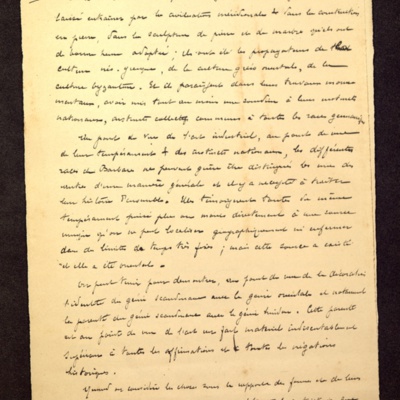 laissé entraîner par les civilisations méridionales dans la construction
en pierre, dans la sculpture de pierre et de marbre qu'ils ont
adaptée ; ils sont de les propagateurs de la
culture néo-grecque, de la culture gréco orientale, de la
culture byzantine. Et ils paraissent dans leurs travaux monu
mentaux, avoir mis tout au moins une à leurs instincts
nationaux, instincts collectifs communs à toutes les races germaniques
Au point de vue de l'art industriel, au point de vue
de leur tempérament & des instincts nationaux, les différentes
races de Barbares ne peuvent guère être distinguées les unes des
autres d'une manière générale et il y a à traiter
leur histoire d'ensemble. Elles témoignent toutes du même
tempérament puisé plus ou moins directement à une source
unique qu'on ne peut localiser géographiquement ni enfermer
dans des limites de temps très fixes ; mais cette source a existé
et elle a été orientale.
On peut tenir pour démontrée, au point de vue de la décoration
l'identité du génie scandinave avec le génie oriental et notamment
la parenté du génie scandinave avec le génie hindou. Cette parenté
est au point de vue de l'art un fait matériel indiscutable et
supérieur à toutes les affirmations et à toutes les négations
historiques.
Quand on considère les choses sous le rapport de forme et de leur